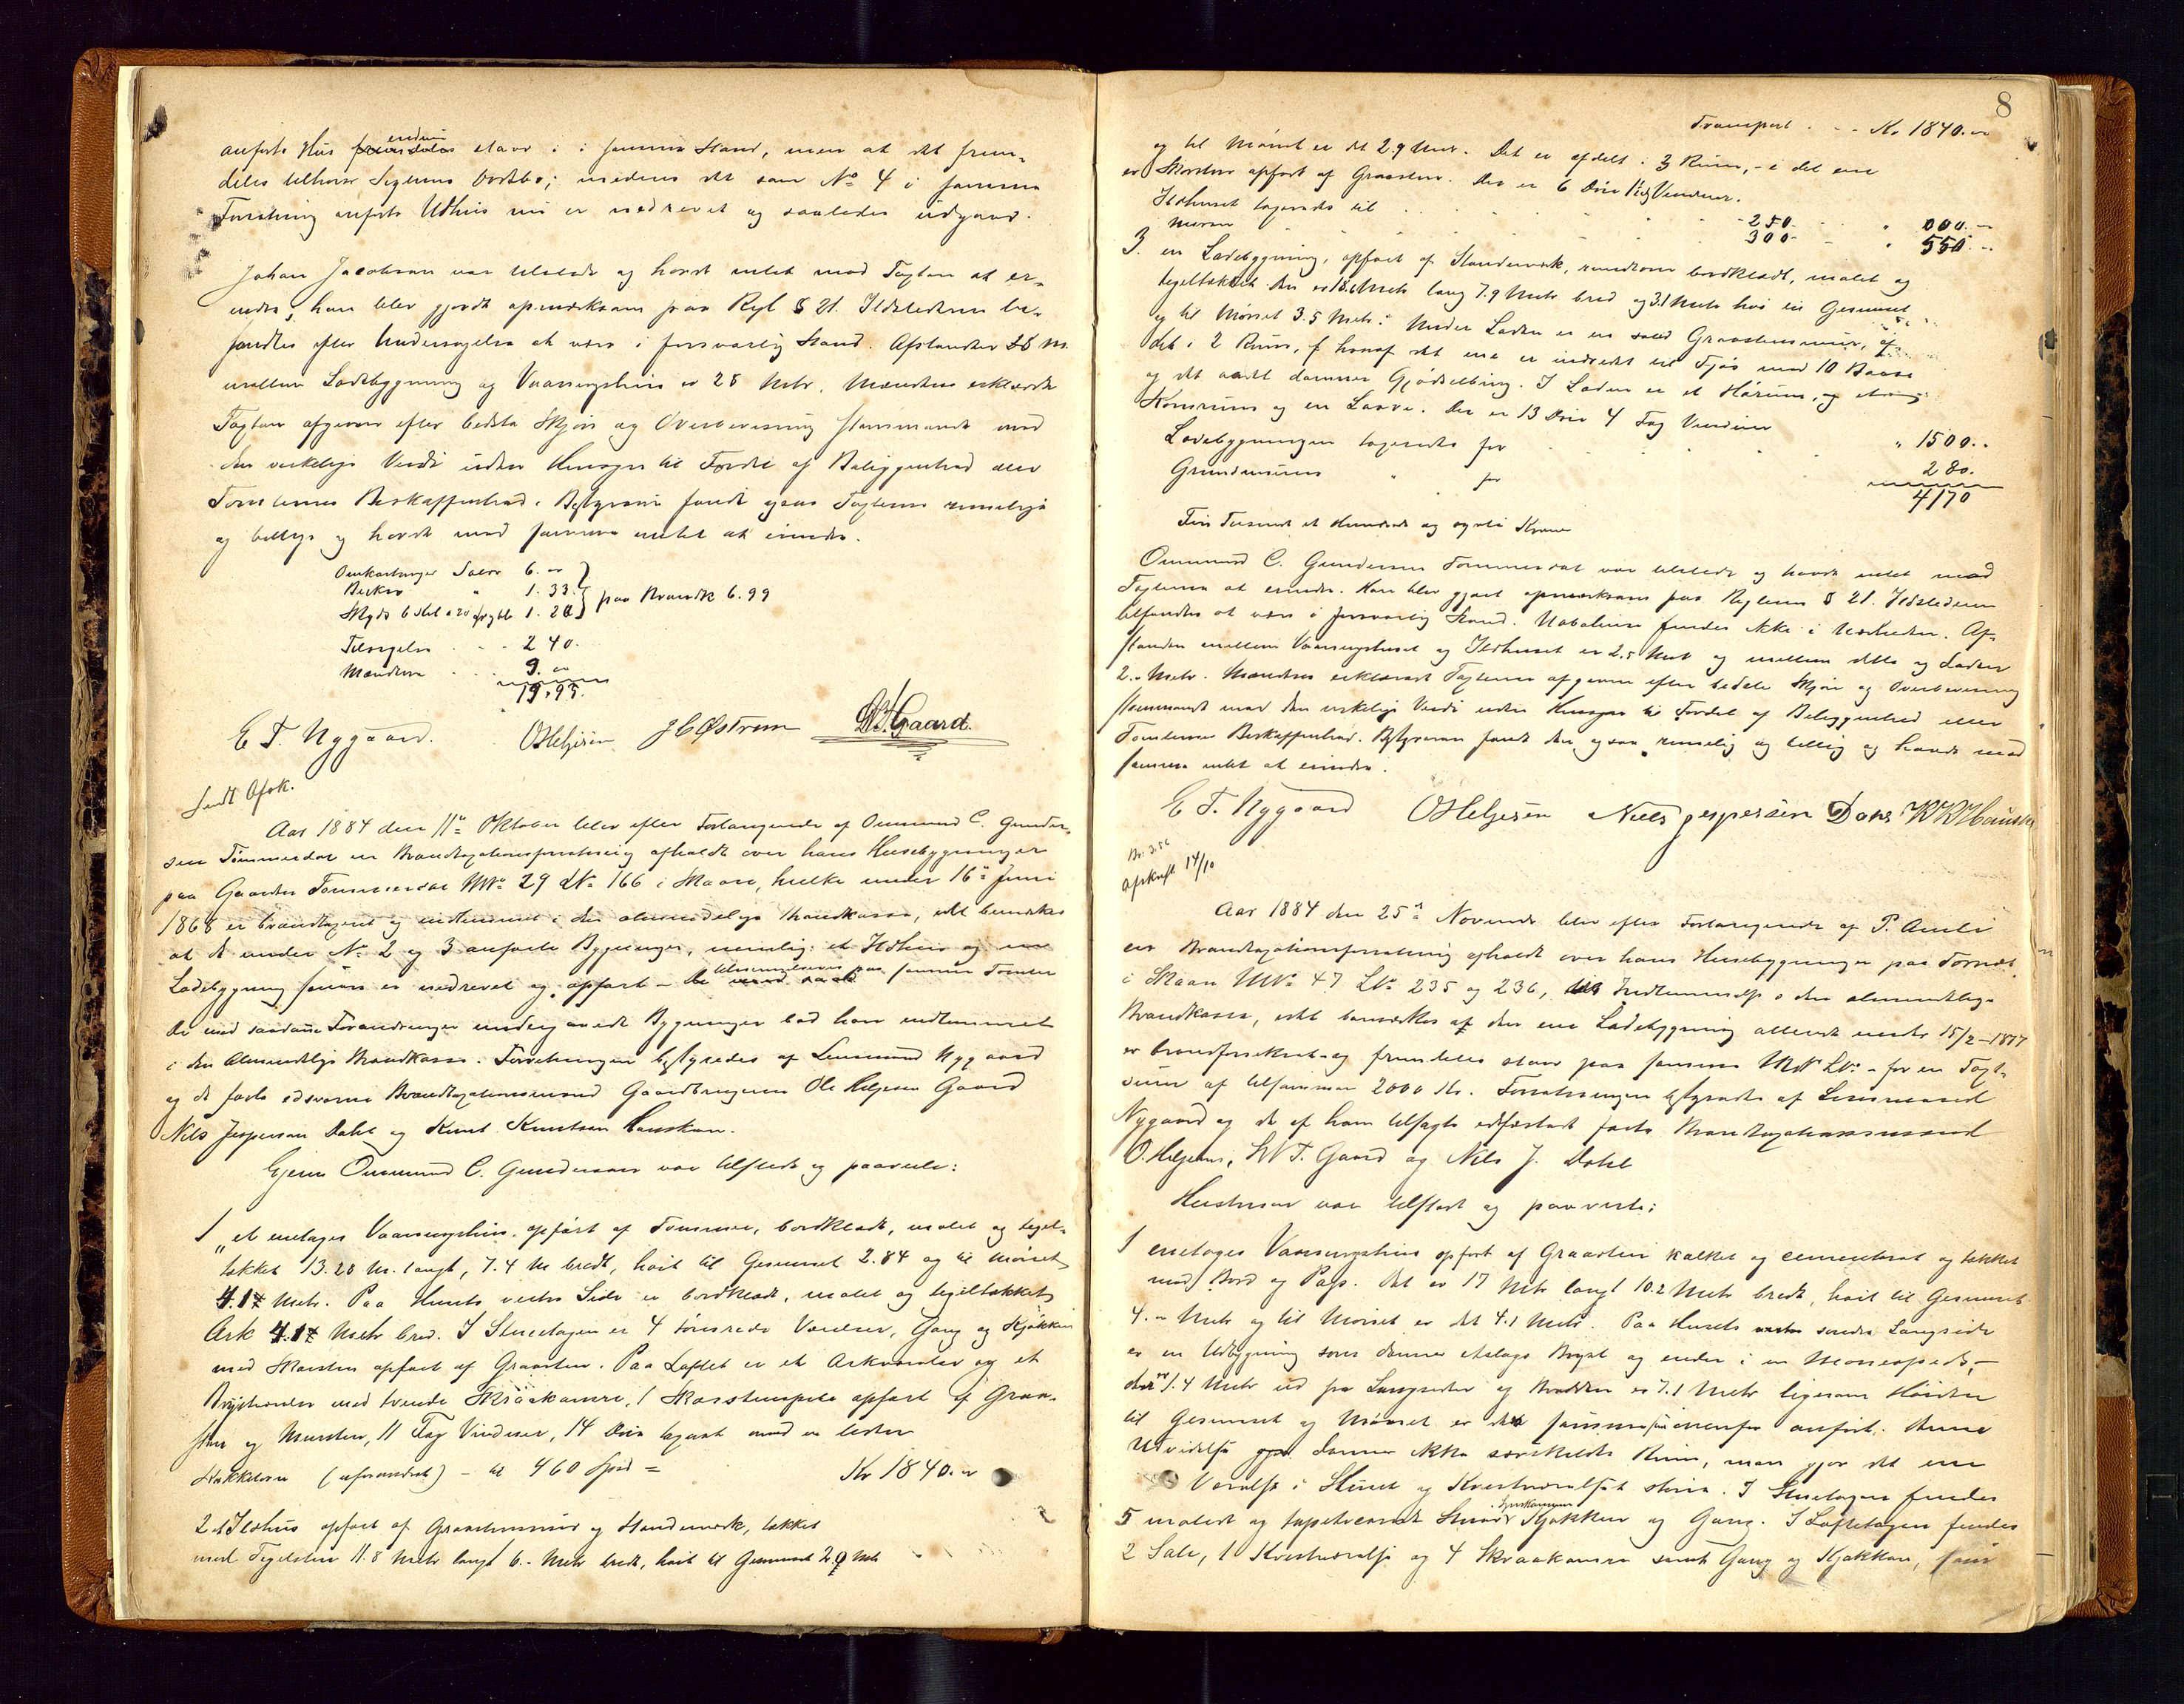 anførte Hus fremdeles endnu staar i samme Stand, men at det frem-
deles tilhører Sigurd; medens det som No 4 i samme
Forretning anførte Udhus nu er nedrevet og saaledes udgaar.
Johan Jacobsen var tilstede og havde intet mod Taxten at er-
indre, han blev gjordt opmærksom paa Rgl § 21. Ildstederne be-
fandtes efter Undersøgelse at være i forsvarlig Stand. Afstanden
mellem Ladebygning og Vaaningshus er 28 Metr. Mændene erklærede
Taxten afgiven efter bedste Skjøn og Overbevisning stemmende med
den virkelige Værdi uden Hensyn til Fordel af Beliggenhed eller
Tomternes Beskaffenhed. Bestyreren fandt ogsaa Taxterne rimelige
og billige og havde mod samme intet at erindre.
Omkostninger Salær 6. "
1.33
Skyds 1.20 paa Brandk 6.99
Tilsigelse 2 40.
Mændene 9. "
19.93.
E T. Nygaard. OHelgesen JCØstrem W.T.Gaard.
sendt Afsk.
Aar 1884 den 11te Oktober blev efter Forlangende af Ommund C. Gunder-
sen Tømmerdal en Brandtaxationsforretning afholdt over hans Husebygninger
paa Gaarden Tømmerdal MNo 29 LNo 166 i Skaare, hvilke under 16de Juni
1868 er brandtaxeret og indlemmet i den almindelige Brandkasse, idet bemærkes
at de under No 2 og 3 anførte Bygninger, nemlig: et Ildhus og en
Ladebygning senere er nedrevet og opført paa samme Tomter
De med saadanne Forandringer undergaaede Bygninger bad han indlemmet
i den Almindelige Brandkasse. Forretningen bestyredes af Lensmand Nygaard
og de faste edsvorne Brandtaxationsmænd Gaardbrugerne Ole Helgesen Gaard
Nils Jespersen Dahl og Knut Knutsen Hauskan.
Ejeren Ommund C. Gundersen var tilstede og paaviste:
1 et enetages Vaaningshus, opført af Tømmer, bordklædt, malet og tegl-
tækket 13.28 M. langt, 7.4 M bredt, høit til Gesimset 2.84 og til Mønet
4.17 Metr. Paa Husets vestre Side er bordklædt, malet og tegltækket
Ark 4.17 Metr bred. I Stueetagen er 4 Værelser, Gang og Kjøkken
med Skorsten opført af Graasten. Paa Loftet er et Arkværelse og et
Brystværelse med tvende Skraakamre, 1 Skorstenspibe opført af Graa-
sten og Mursten, 11 Fag Vinduer, 14 Døre taxeret med en liden
(uforandret) - til 460 Spd = Kr 1840. "
2 et Ildhus opført af Graastensmur og Standerværk, tækket
med Teglsten 11.8 Metr langt 6.- Metr bredt, høit til Gesimset 2.9 Metr
8
Transport . . - Kr 1840. "
og til Mønet er det 2.9 Metr. Det er afdelt i 3 Rum, - i det ene
er Skorsten opført af Graasten. Der er 6 Døre Vinduer.
Ildhuset taxeredes til 250. " 000. -
Muren 300 - " 550. -
3. en Ladebygning, opført af Standerværk, rundtom bordklædt, malet og
tegltækket. Den er 18.6 Metr lang 7.9 Metr bred og 3.1 Metr høi til Gesimset
og til Mønet 3.5 Metr. Under Laden er en Graastensmur, af-
delt i 2 Rum, hvoraf det ene er indredet til Fjøs med 10 Baase
og det andet danner Gjødselbing. I Laden er et Hørum, og et
Kornrum og en Laave. Der er 13 Døre 4 Fag Vinduer
Ladebygningen taxeredes for " 1500. -
Grundmuren " for 280.
4170
Fire Tusende et Hundrede og sytti Kroner
Ommund C. Gundersen Tømmerdal var tilstede og havde intet mod
Taxterne at erindre. Han blev gjort opmærksom paa Reglerne § 21. Ildstederne
befandtes at være i forsvarlig Stand. Nabohuse findes ikke i Nærheden. Af-
standen mellem Vaaningshuset og Ildhuset er 2.5 Metr og mellem dette og Laden
2. " Metr. Mændene erklærede Taxterne afgiven efter bedste Skjøn og Overbevisning
stemmende med den virkelige Værdi uden Hensyn til Fordel af Beliggenhed eller
Tomternes Beskaffenhed. Bestyreren fandt den ogsaa rimelig og billig og havde mod
samme intet at erindre.
E T. Nygaard OHelgesen Niels Jespersen Dahl
Br. 3.56
Afskrift 14/10
Aar 1884 den 25de November blev efter Forlangende af P. Amli
en Brandtaxationsforretning afholdt over hans Husebygninger paa
i Skaare MNo 47 LNo 235 og 236, til Indlemmelse i den almindelige
Brandkasse, idet bemærkes at den ene Ladebygning allerede under 15/2-1877
er brandforsikret og fremdeles staar paa samme MNo LNo - for en Taxt-
sum af tilsammen 2000 Kr. Forretningen bestyredes af Lensmand
Nygaard og de af ham tilsagte edfæstede faste Brandtaxationsmænd
O. Helgesen, W T. Gaard og Nils J. Dahl
Hustruen var tilstede og paaviste:
1 enetages Vaaningshus opført af Graasten kalket og cementeret og tækket
med Bord og Pap. Det er 17 Metr langt 10.2 Metr bredt, høit til Gesimset
4. " Metr og til Mønet er det 4.1 Metr. Paa Husets søndre Langside
er en Udbygning som danner etslags Bryst og ender i en
den er 1.4 Metr ud fra Langsiden og Bredden er 7.1 Metr ligesom Høiden
til Gesimset og Mønet er den samme som ovenfor anført. Denne
Udvidelse danner ikke særskildte Rum, men gjør det ene
Værelse i Stuen og Kvistværelset større. I Stueetagen findes
5 malede og tapetserede Stuer, Spiskammer Kjøkken og Gang. I Loftetagen findes
2 Sale, 1 Kvistværelse og 4 Skraakamre samt Gang og Kjøkken, som